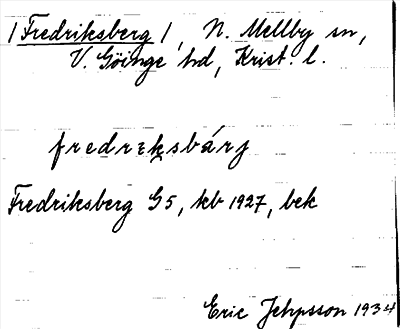 /Fredriksberg/, N. Mellby sn,
V. Göinge hd, Krist. l.
fredrɩksbárj
Fredriksberg G5, kb 1927, bek
Eric Jehpsson 1934